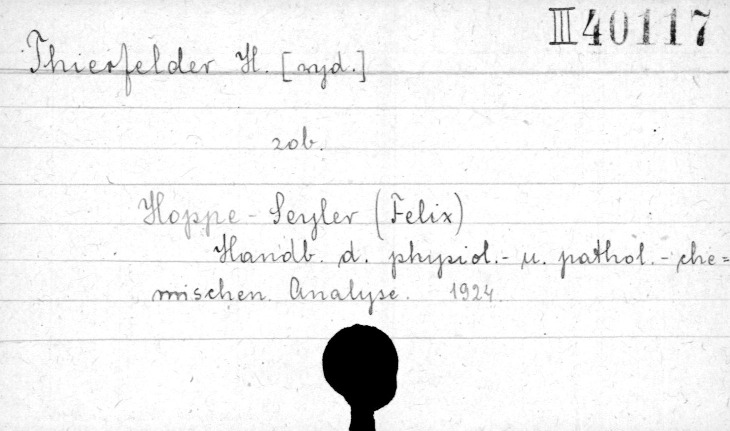 III 40117
Thierfelder H. [wyd.]
zob.
Hoppe-Seyler (Felix)
Handb. d. physiol.- u. pathol.-che=
mischen. Analyse. 1924.